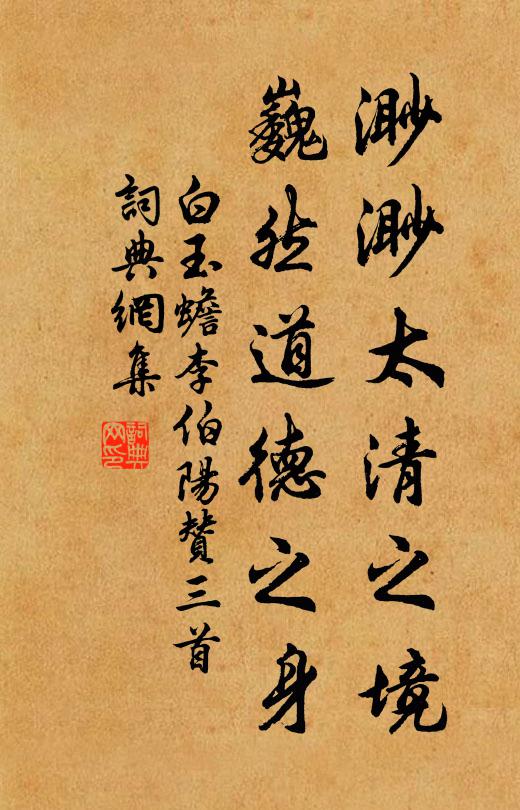 渺渺太清之境
巍然道德之身
白玉蟾李伯陽贊三首
詞典網集
詞典网印